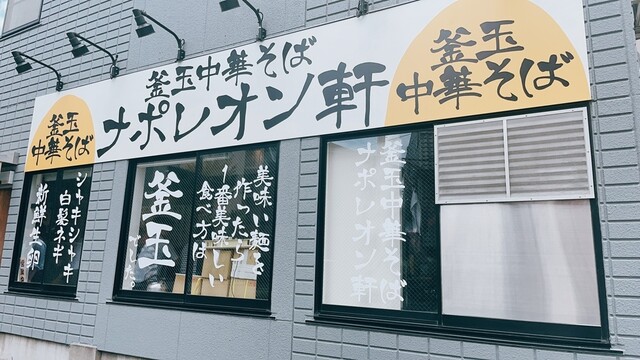 釜玉中華そば
ナポレオン軒
釜玉
中華そば
釜玉
中華そば
シャキシャキ
白髪ネギ
新鮮生卵
美味い麺を
作ったら
1番美味しい
食べ方は
釜玉
でした。
釜玉中華そば
ナポレオン軒